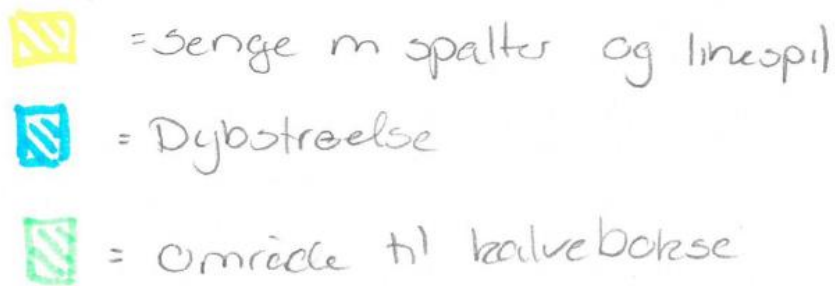 = Senge m spalter og linespil
= Dybstrøelse
= Område til kalvebokse